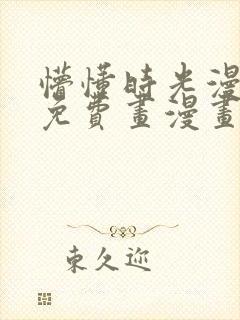 懵懂時光漫
免費畫漫畫
東久迩